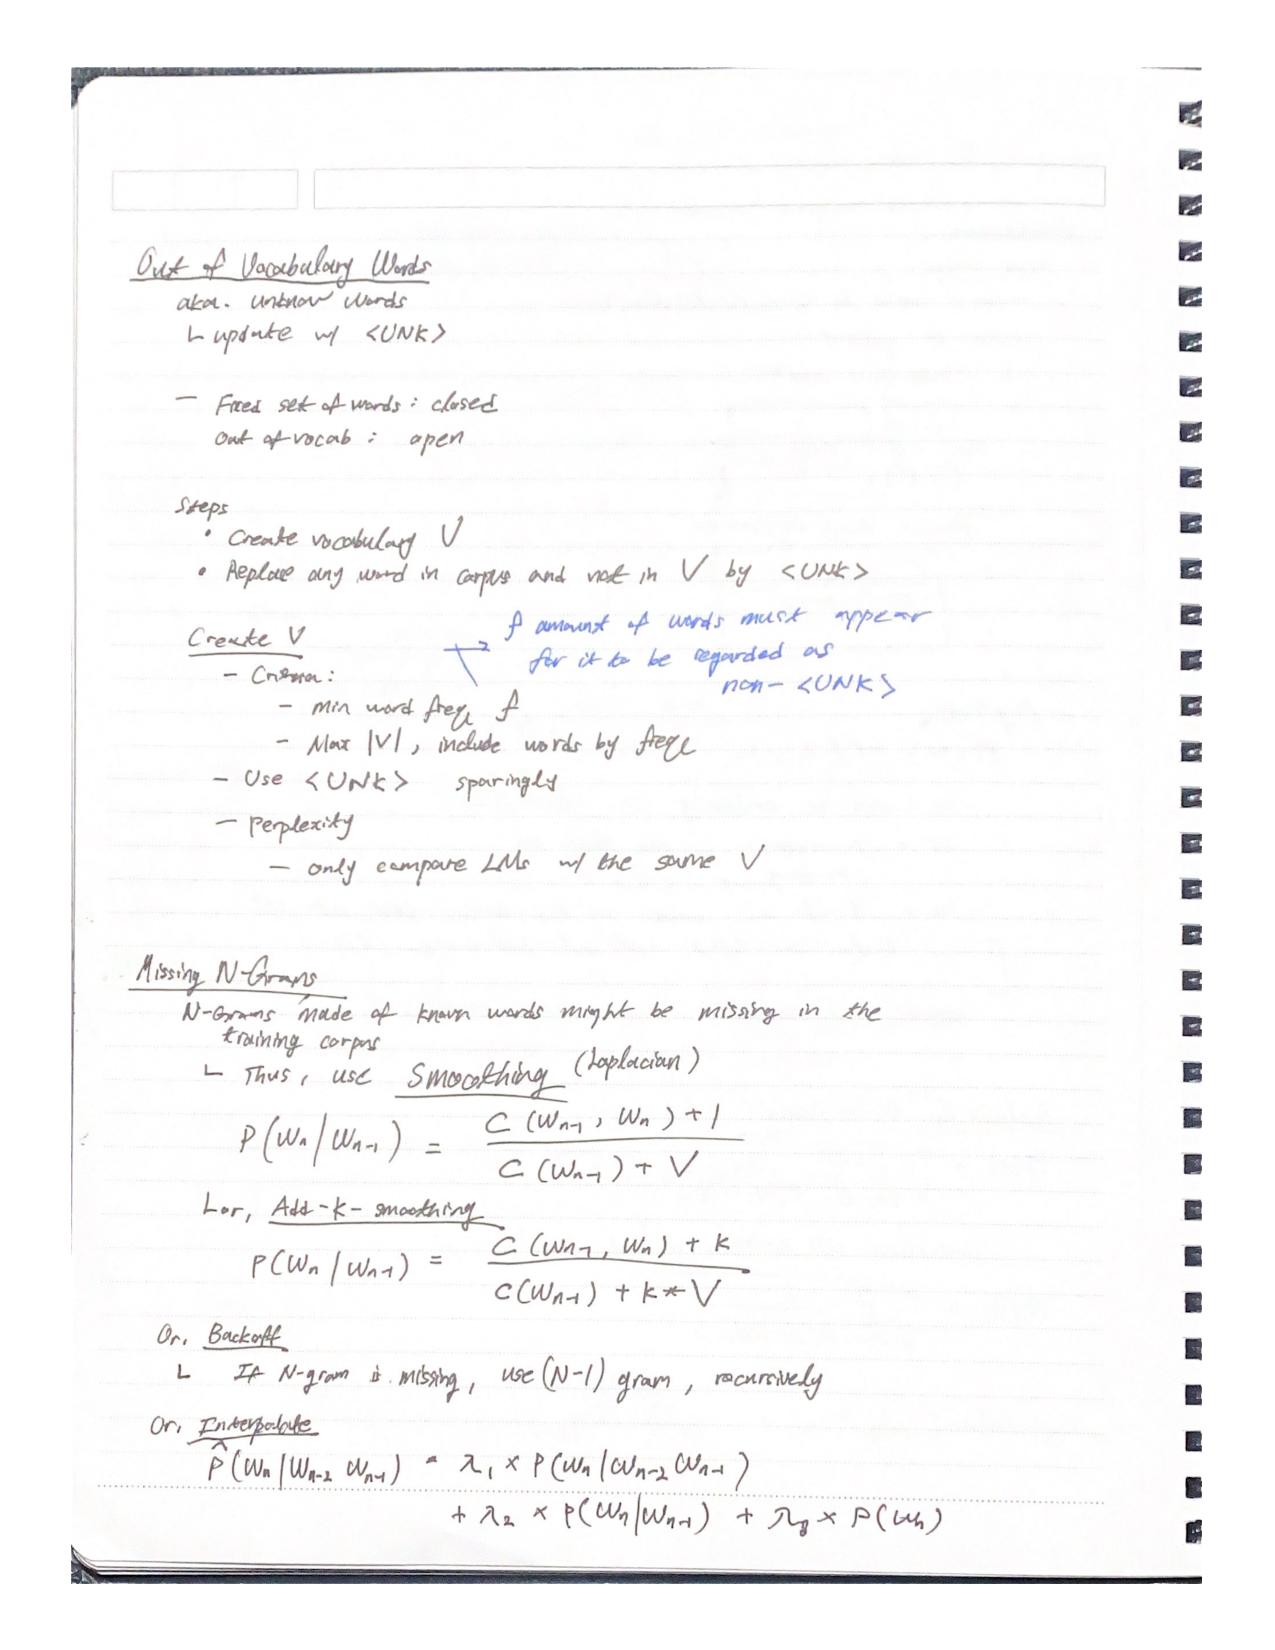 Out of Vocabulary Words
aka. unknow words
└ update w/ <UNK>
- Fixed set of words : closed
Out of vocab : open
Steps
• Create vocabulary V
• Replace any word in corpus and not in V by <UNK>
f amount of words must appear
for it to be regarded as
non- <UNK>
Create V
- Criteria:
- min word freq f
- Max |V|, include words by freq
- Use <UNK> sparingly
- Perplexity
- only compare LMs w/ the same V
Missing N-Grams
N-Grams made of known words might be missing in the
training corpus
└ Thus, use Smoothing (Laplacian)
P(Wn | Wn-1) = C(Wn-1, Wn) + 1 / C(Wn-1) + V
└ or, Add-k-smoothing
P(Wn | Wn-1) = C(Wn-1, Wn) + k / C(Wn-1) + k * V
Or, Backoff
└ If N-gram is missing, use (N-1) gram, recursively
Or, Interpolate
P̂(Wn | Wn-2 Wn-1) = λ1 × P(Wn | Wn-2 Wn-1)
+ λ2 × P(Wn | Wn-1) + λ3 × P(Wn)